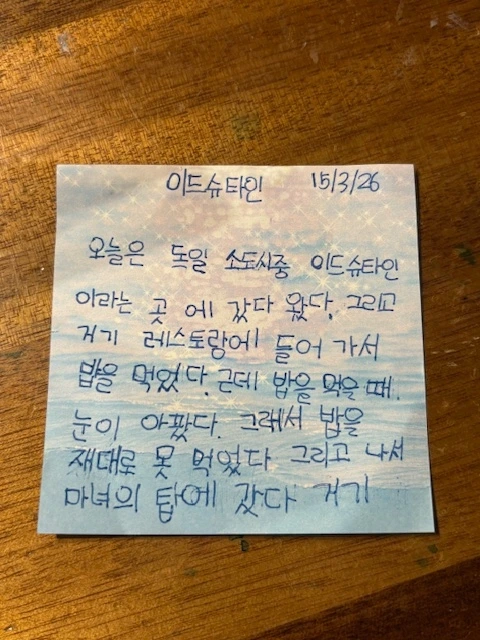 이드슈타인 15/3/26
오늘은 독일 소도시중 이드슈타인
이라는 곳 에 갔다 왔다. 그리고
거기 레스토랑에 들어 가서
밥을 먹었다. 근데 밥을 먹을 때.
눈이 아팠다. 그래서 밥을
재대로 못 먹었다. 그리고 나서
마녀의 탑에 갔다 거기